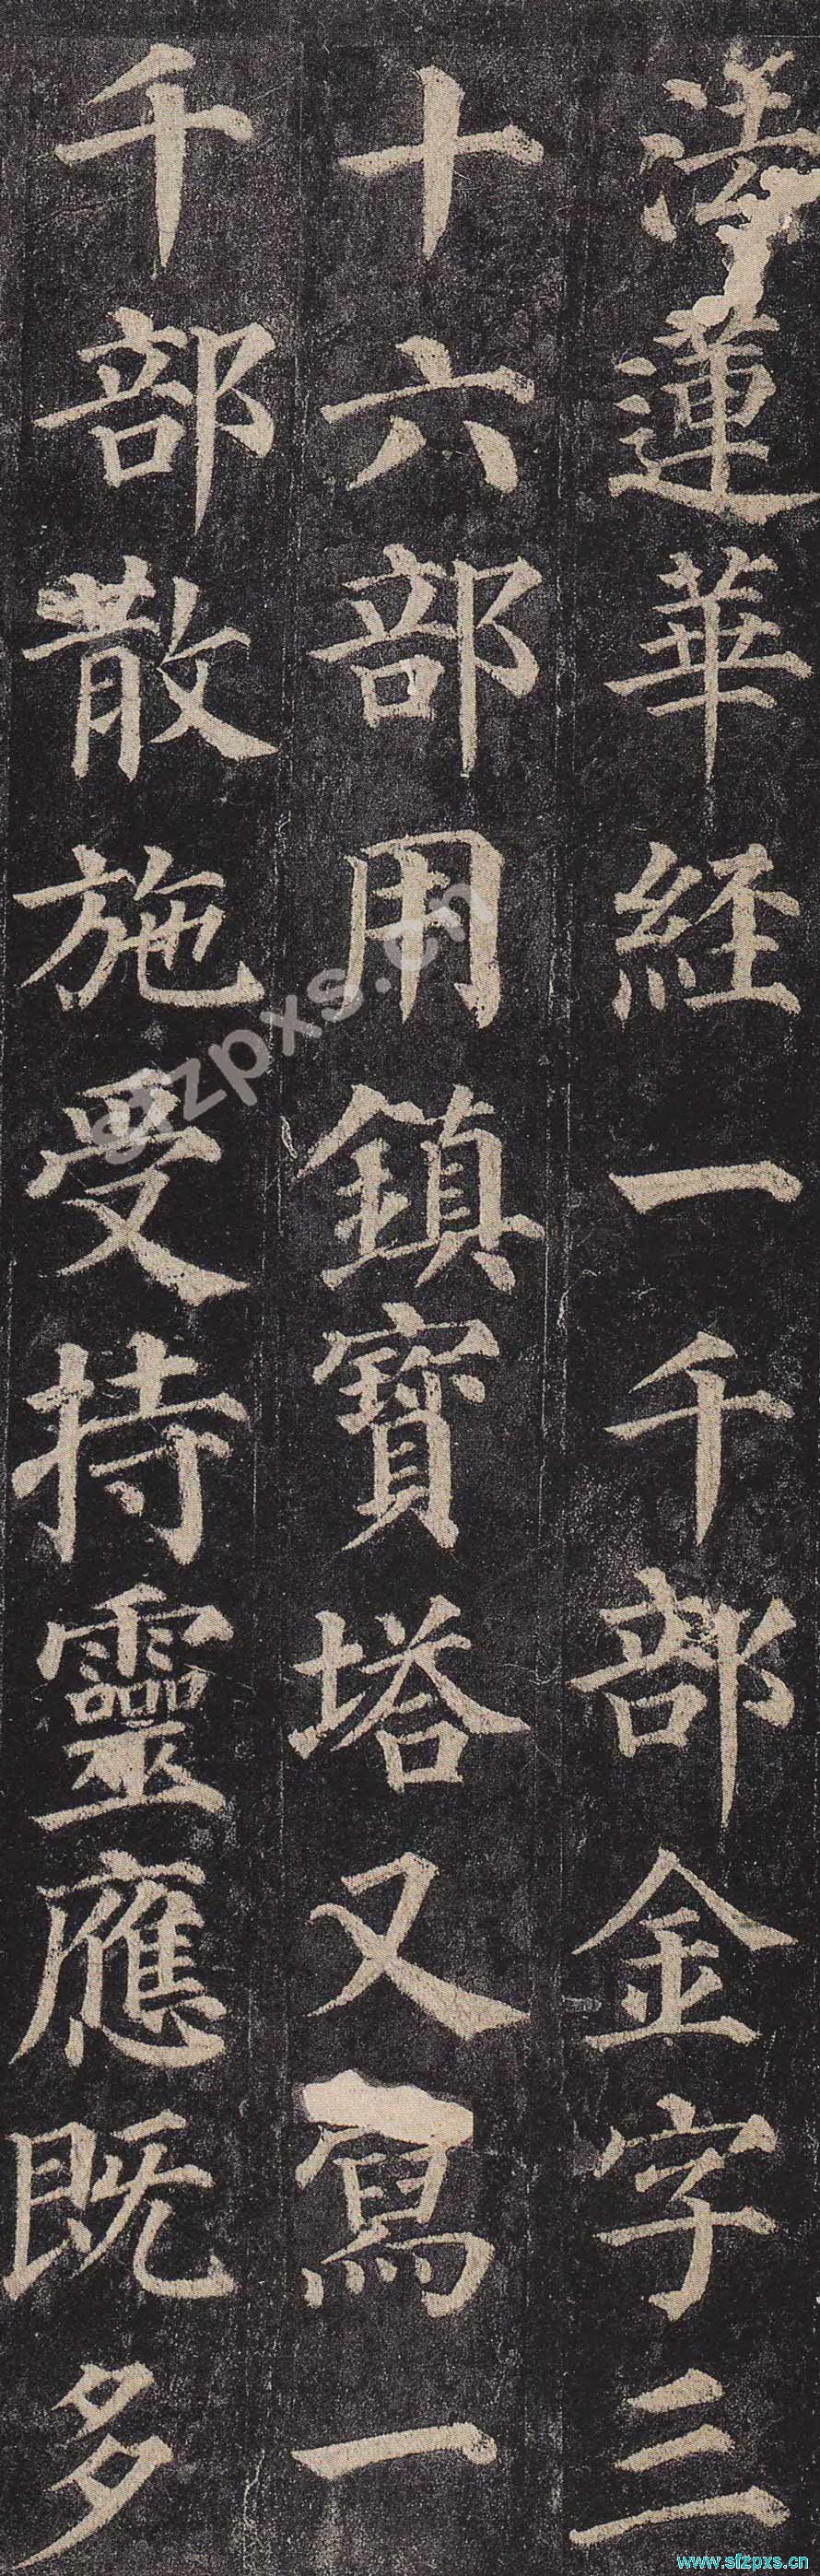 法蓮華經一千部金字三
十六部用鎮寶塔又寫一
千部散施受持靈應既多
sfzpxs.cn
www.sfzpxs.cn